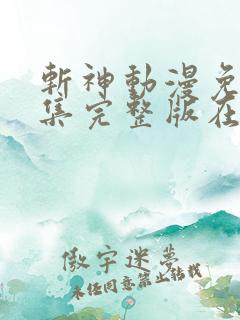 斬神動漫免
集完整版在
傲宇迷夢
未經同意禁止轉載